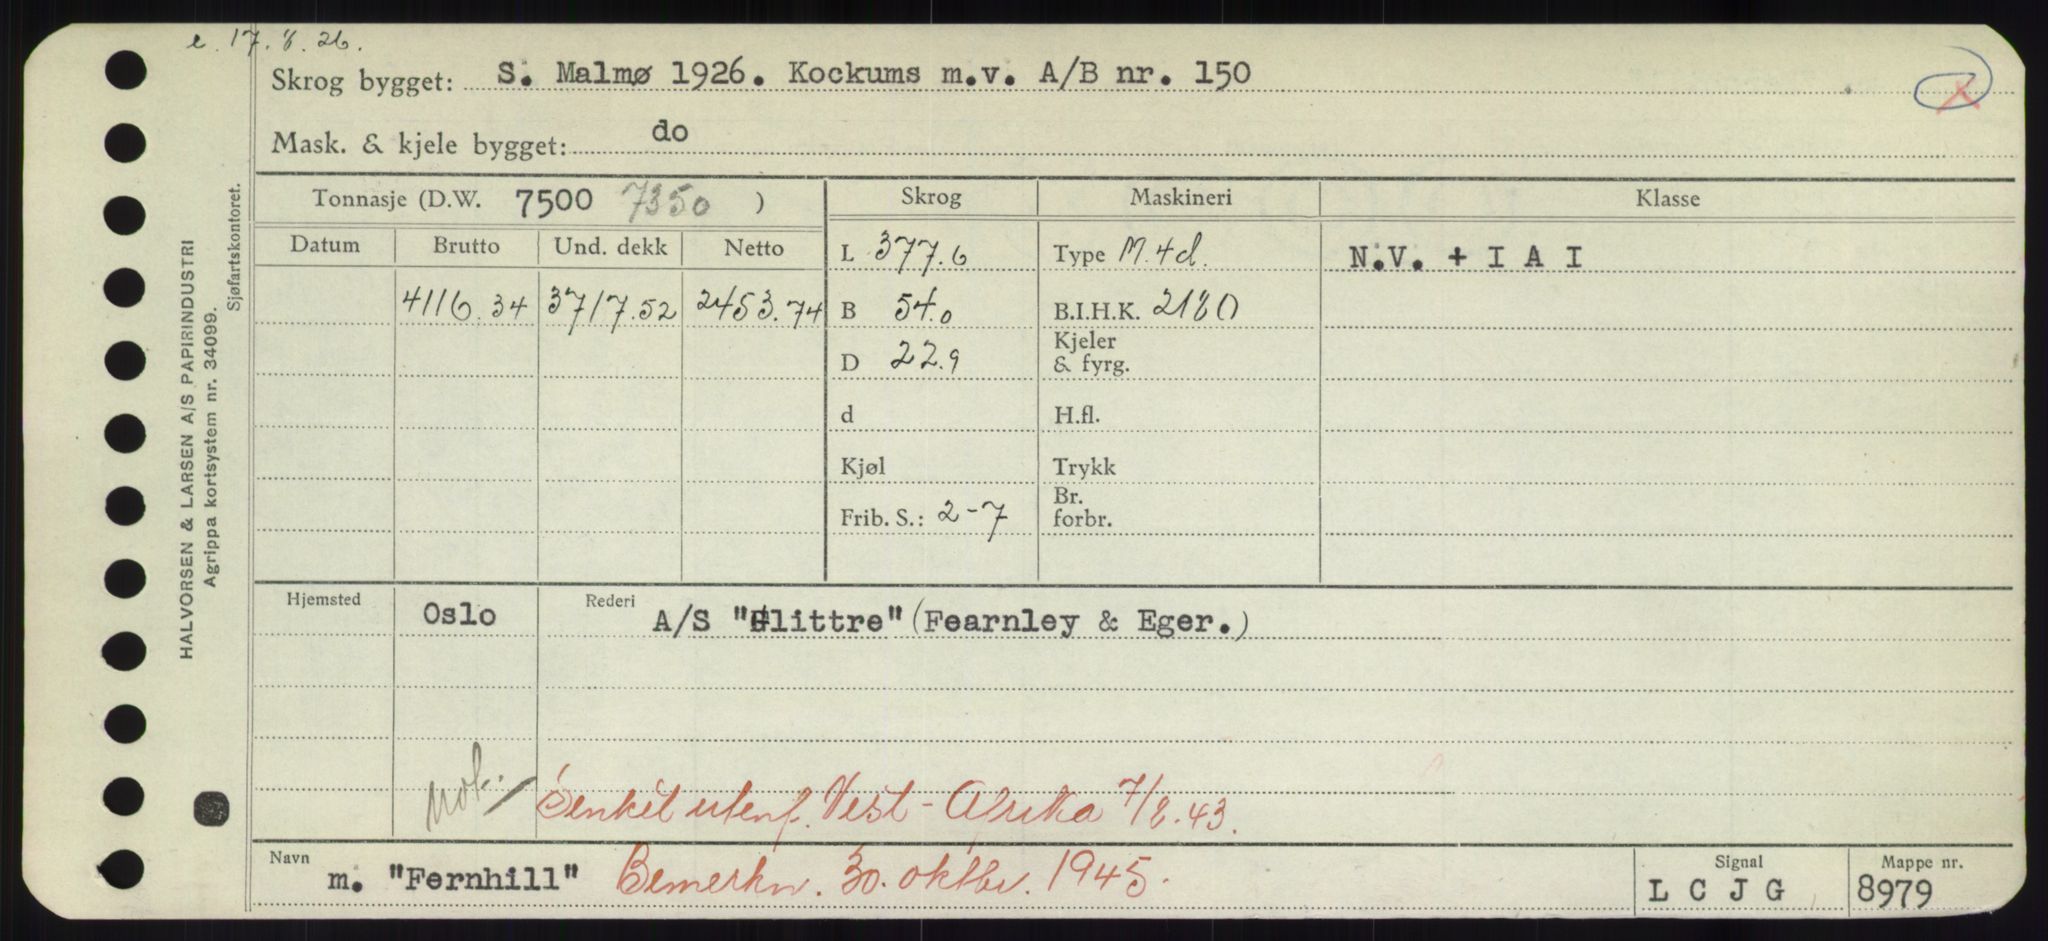 e. 17.8.26.
Skrog bygget: S. Malmø 1926. Kockums m.v. A/B nr. 150
Mask. & kjele bygget: do
Tonnasje (D.W. 7500 7350 ) Skrog Maskineri Klasse
Datum Brutto Und. dekk Netto L 377.6 Type M.4d. N.V. + I A I
4116.34 3717.52 2453.74 B 54.0 B.I.H.K. 2180
D 22.9 Kjeler & fyrg.
d H.fl.
Kjøl Trykk
Frib. S.: 2-7 Br. forbr.
Hjemsted Oslo Rederi A/S "Glittre" (Fearnley & Eger.)
not. Senket utenf. Vest-Afrika 7/8.43.
Navn m. "Fernhill" Bemerkn. 30. oktbr. 1945. Signal L C J G Mappe nr. 8979
HALVORSEN & LARSEN A/S PAPIRINDUSTRI
Agrippa kortsystem nr. 34099.
Sjøfartskontoret.